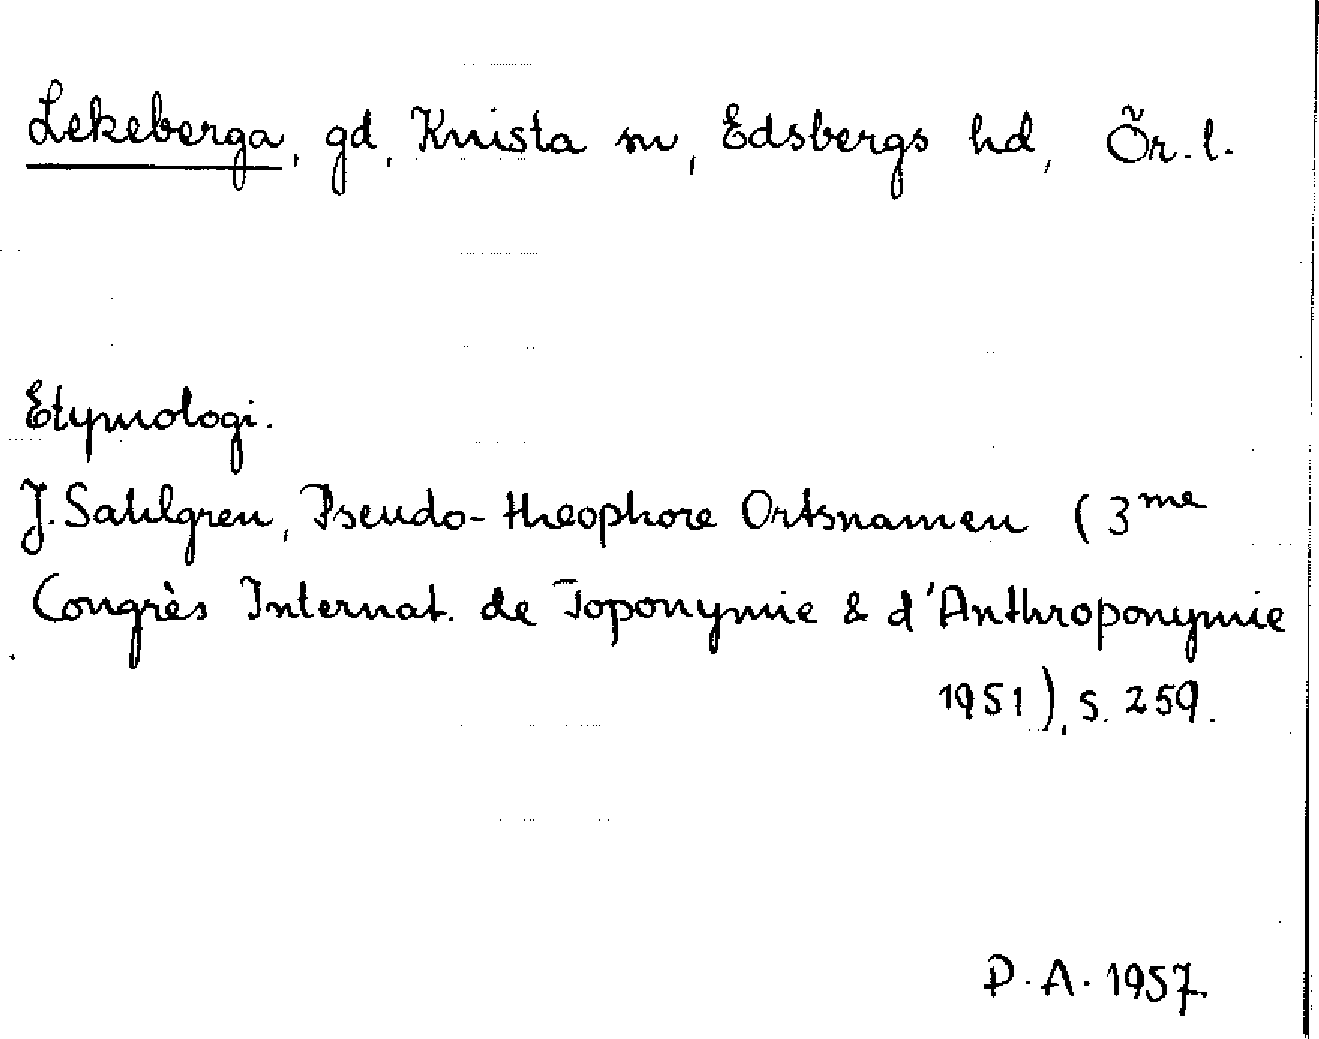 Lekeberga, gd, Knista sn, Edsbergs hd, Ör. l.
Etymologi.
J. Sahlgren, Pseudo-theophore Ortsnamen (3me
Congrès Internat. de Toponymie & d'Anthroponymie
1951), s. 259.
P. A. 1957.